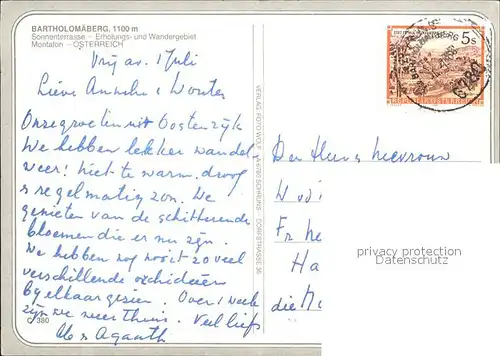 BARTHOLOMÄBERG, 1100 m
Sonnenterrasse – Erholungs- und Wandergebiet
Montafon – ÖSTERREICH
Vrij av. 1 Juli
Lieve Anneke & Wouter
Onze groeten uit Oostenrijk
We hebben lekker wandel
weer! Niet te warm, droog
& regelmatig zon. We
genieten van de schitterende
bloemen die er nu zijn.
We hebben nog nooit zoveel
verschillende orchideeën
bij elkaar gezien. Over 1 week
zijn we weer thuis. Veel liefs
Agaath
C 380
VERLAG FOTO WOLF 6780 SCHRUNS DORFSTRASSE 36
5 S
REPUBLIK ÖSTERREICH
6780
Den Heer & Mevrouw
W
Fr
Ha
privacy protection
DATENSCHUTZ